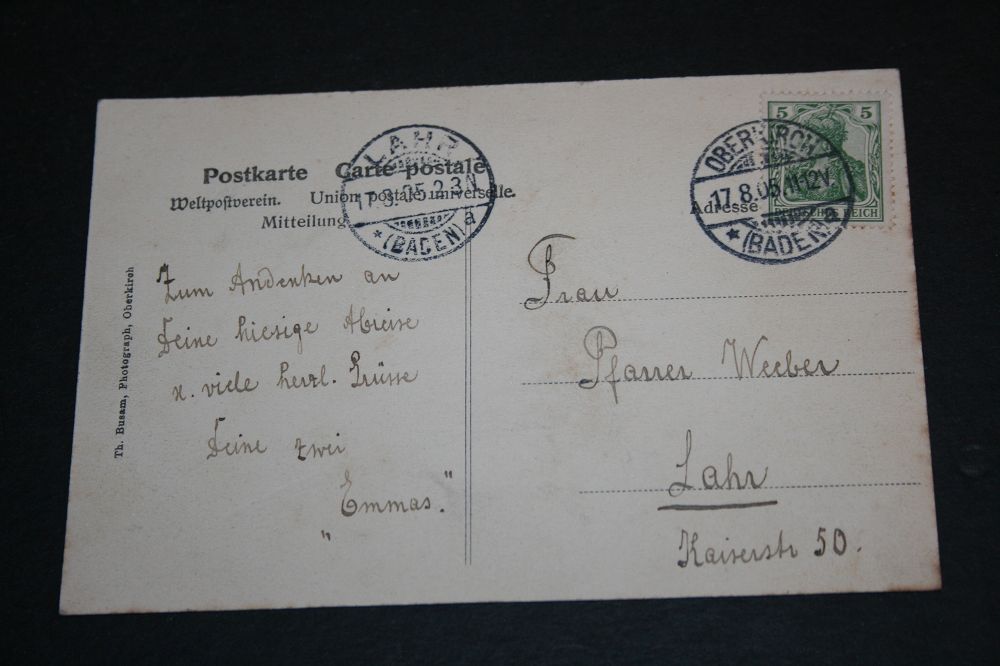 Postkarte Carte postale
Weltpostverein. Union postale universelle.
Mitteilung
Adresse
LAHR
17.8.05.2-3N
*(BADEN)a
OBERKIRCH
17.8.05.11-12V.
*(BADEN)a
5 5
DEUTSCHES REICH
Th. Busam, Photograph, Oberkirch
Zum Andenken an
Deine hiesige Abreise
u. viele herzl. Grüsse
Deine zwei
„Emmas."
Frau
Pfarrer Weeber
Lahr
Kaiserstr 50.